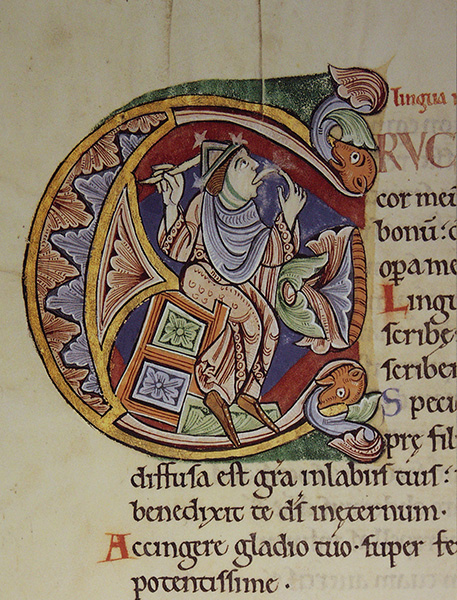 lingua
ERUC
cor meū
bonū: d
opa me
Lingu
scribę
scriben
Speci
prę fil
diffusa est gr̄a inlabiis tuis:
benedixit te ds̄ inęternum.
Accingere gladio tuo. super fe
potentissime.